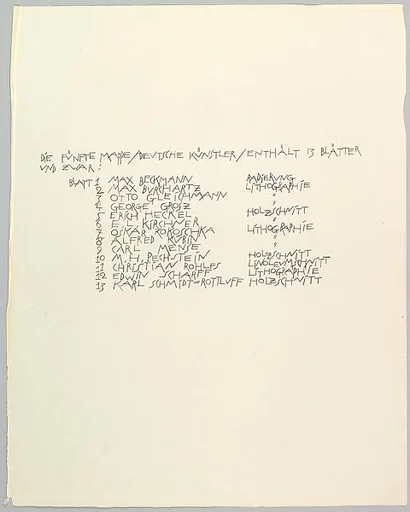 DIE FÜNFTE MAPPE/DEUTSCHE KÜNSTLER/ENTHÄLT 13 BLÄTTER
UND ZWAR:
BLATT 1 MAX BECKMANN RADIERUNG
2 MAX BURCHARTZ LITHOGRAPHIE
3 OTTO GLEICHMANN "
4 GEORGE GROSZ "
5 ERICH HECKEL HOLZSCHNITT
6 E. L. KIRCHNER "
7 OSKAR KOKOSCHKA LITHOGRAPHIE
8 ALFRED KUBIN "
9 CARL MENSE "
10 M. H. PECHSTEIN HOLZSCHNITT
11 CHRISTIAN ROHLFS LINOLEUMSCHNITT
12 EDWIN SCHARFF LITHOGRAPHIE
13 KARL SCHMIDT-ROTTLUFF HOLZSCHNITT